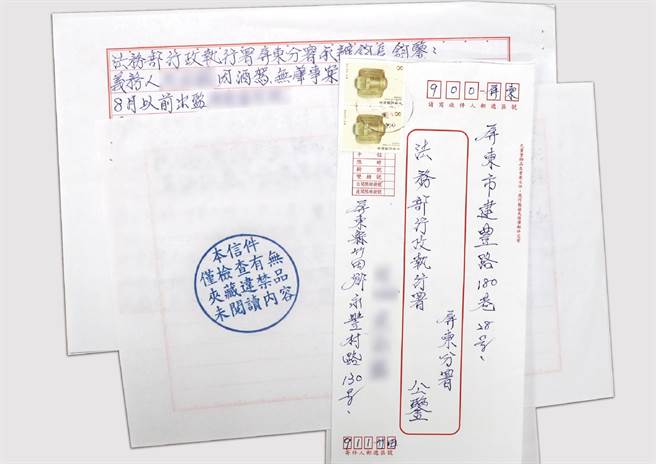 法務部行政執行署屏東分署承辦分長鈞鑒：
義務人 因酒駕、無肇事案
8月以前出監
本信件
僅檢查有無
夾藏違禁品
未閱讀內容
900-屏東
請寫收件人郵遞區號
屏東市建豊路180巷28号、
法務部行政執行分署
屏東分署
公鑒
屏東縣竹田鄉永豐村 路130号、
911竹田
寄件人郵遞區號